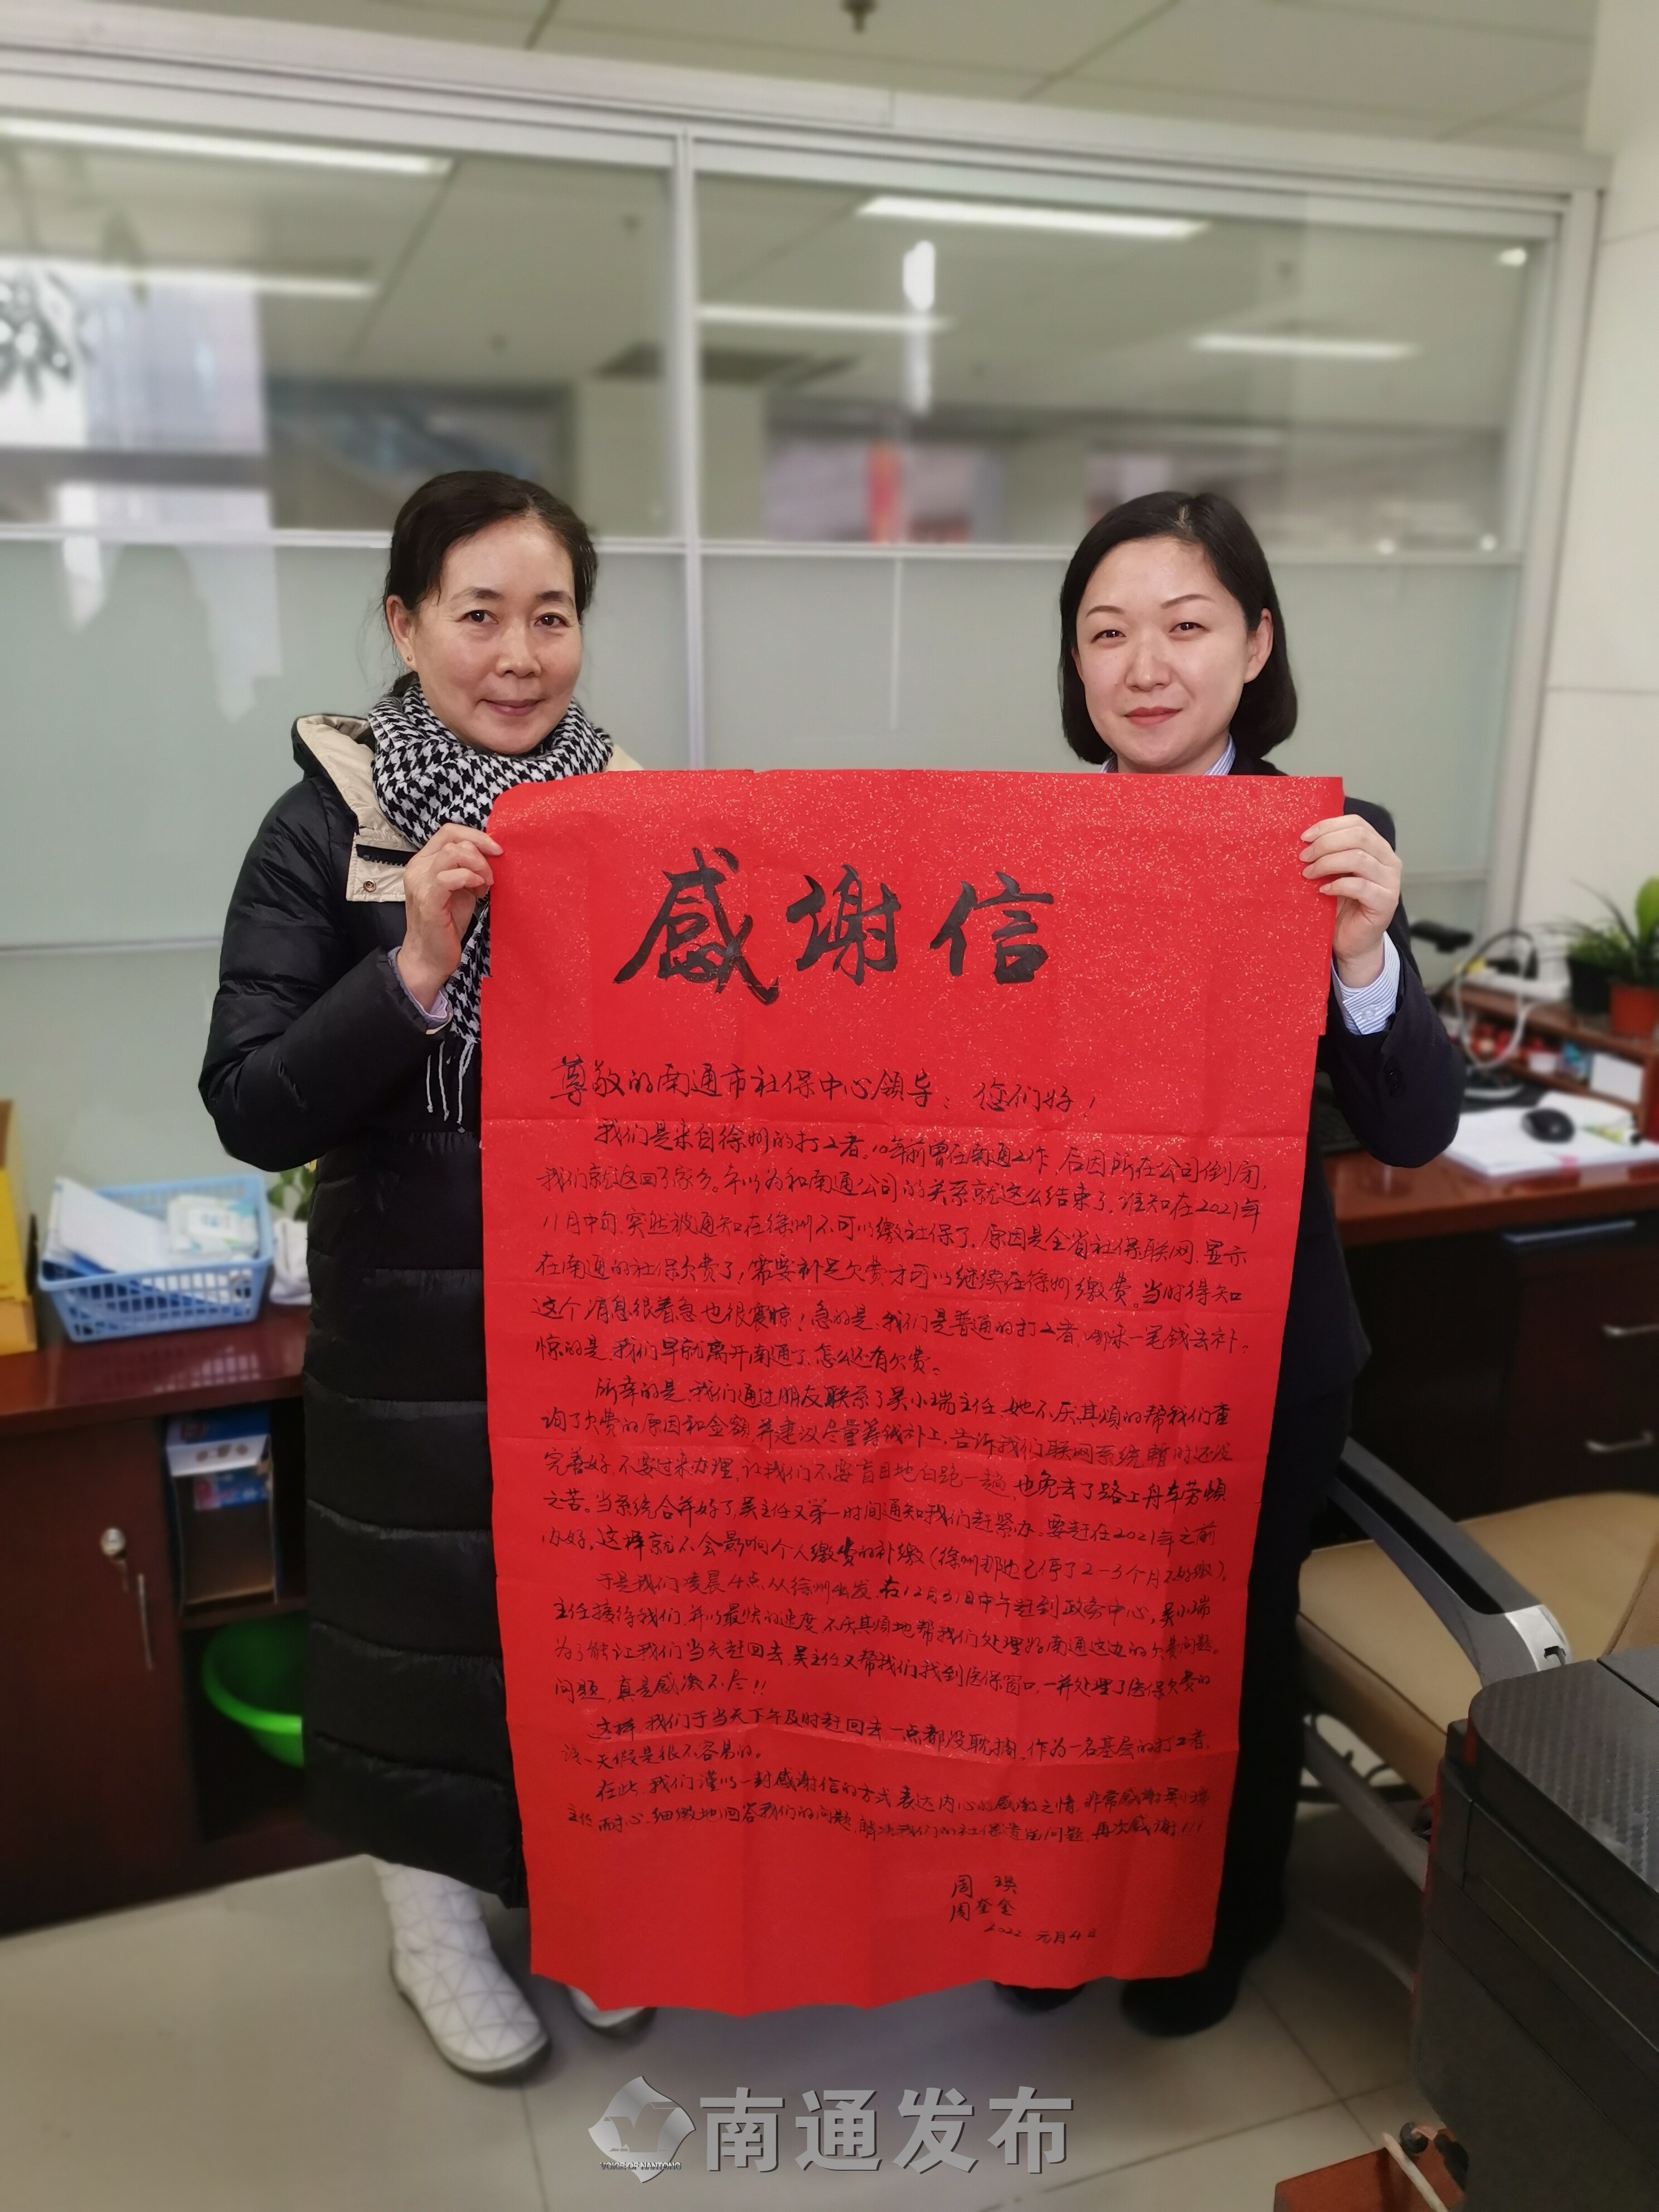 感谢信
尊敬的南通市社保中心领导：您们好！
我们是来自徐州的打工者。10年前曾在南通工作，后因所在公司倒闭，
我们就返回了家乡。本以为和南通公司的关系就这么结束了，谁知在2021年
11月中旬，突然被通知在徐州不可以缴社保了，原因是全省社保联网，显示
在南通的社保欠费了，需要补足欠费才可以继续在徐州缴费。当时得知
这个消息很着急也很震惊！急的是：我们是普通的打工者，哪来一笔钱去补。
惊的是，我们早就离开南通了，怎么还有欠费。
所幸的是，我们通过朋友联系了吴小瑞主任，她不厌其烦的帮我们查
询了欠费的原因和金额，并建议尽量筹钱补上，告诉我们联网系统暂时还没
完善好，不要过来办理，让我们不要盲目地白跑一趟，也免去了路上舟车劳顿
之苦。当系统合并好了，吴主任又第一时间通知我们赶紧办。要赶在2021年之前
办好，这样就不会影响个人缴费的补缴（徐州那边已停了2-3个月不好缴）。
于是我们凌晨4点从徐州出发，在12月31日中午赶到政务中心，吴小瑞
主任接待我们，并以最快的速度，不厌其烦地帮我们处理好南通这边的欠费问题。
为了能让我们当天赶回去，吴主任又帮我们找到医保窗口，一并处理了医保欠费的
问题，真是感激不尽！！
这样，我们于当天下午及时赶回去，一点都没耽搁，作为一名基层的打工者，
请一天假是很不容易的。
在此，我们谨以一封感谢信的方式表达内心的感激之情，非常感谢吴小瑞
主任耐心、细致地回答我们的问题，解决我们的社保问题，再次感谢！！！
周琪
周奎金
2022 元月4日
南通发布
VOICE OF NANTONG